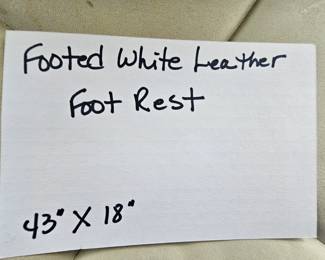 Footed White Leather
Foot Rest
43" X 18"